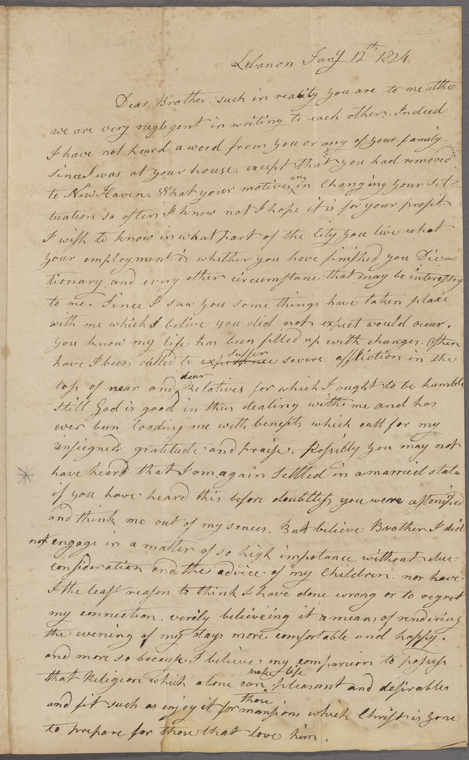 Lebanon Jany 12th 1824
Dear Brother. such in reality you are to me altho
we are very neglegent in writing to each other. Indeed
I have not heard a word from you or any of your family
since I was at your house except that you had removed
to New Haven. What your motives are in changing your sit-
tuation so often I know not I hope it is for your profit
I wish to know in what part of the City you live what
your employment is whether you have finished you Dic-
tionary, and every other circumstance that may be interesting
to me. Since I saw you some things have taken place
with me which I belive you did not expect would occur.
You know my life has been filled up with changes. Often
have I been called to suffer severe affliction in the
loss of near and dear Relatives for which I ought to be humble
still God is good in thus dealing with me and has
ever been loading me with benefits which call for my
unfeigned gratitude and praise. Possibly you may not
have heard that I am again settled in a married state
if you have heard this before doubtless you were astonished
and think me out of my sences. But believe Brother I did
not engage in a matter of so high importance without due
consideration and the advice of my Children. nor have
I the least reason to think I have done wrong or to regret
my connection. verily believeing it a means of rendering
the evening of my days more comfortable and happy.
and more so because I believe my companion to possess
that Religion which alone can make life pleasant and desirable
and fit such as enjoy it for those mansions which Christ is gone
to prepare for those that love him.